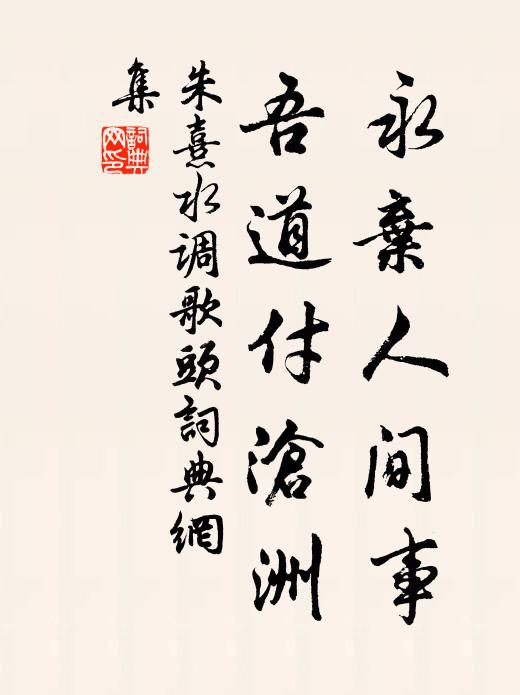 永棄人間事
吾道付滄洲
朱熹水调歌頭詞典網
集
詞典
网印